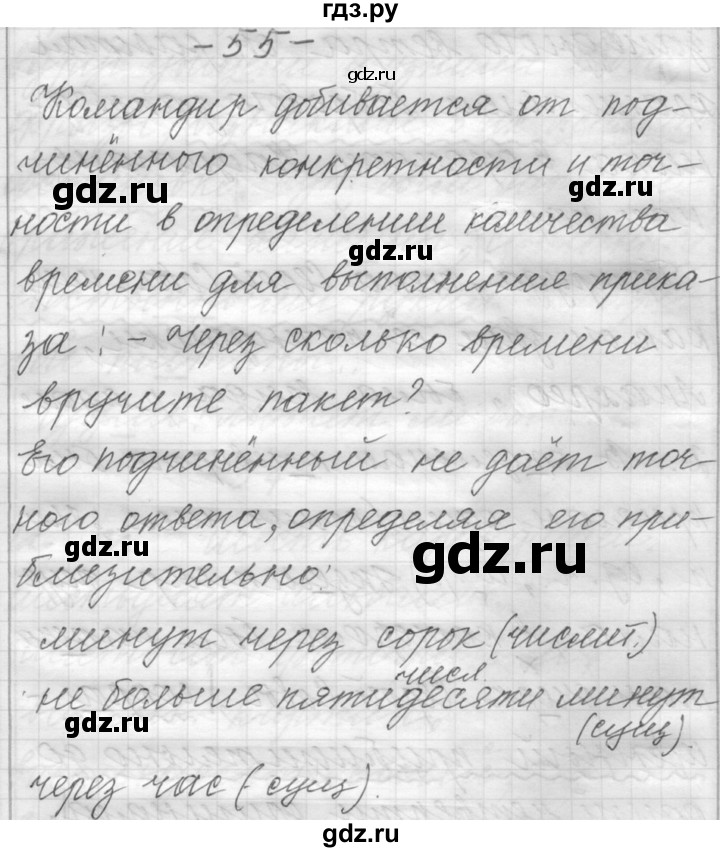 гдз.ру
- 55 -
gdz.ru
Командир добивается от под-
чинённого конкретности и точ-
gdz.ru
gdz.ru
ности в определении количества
gdz.ru
времени для выполнения прика-
за: - Через сколько времени
вручите пакет?
Его подчинённый не даёт точ-
ного ответа, определяя его при-
gdz.ru
gdz.ru
близительно:
минут через сорок (числит.)
числ
не больше пятидесяти минут
gdz.ru
(сущ).
через час (сущ).
gdz.ru